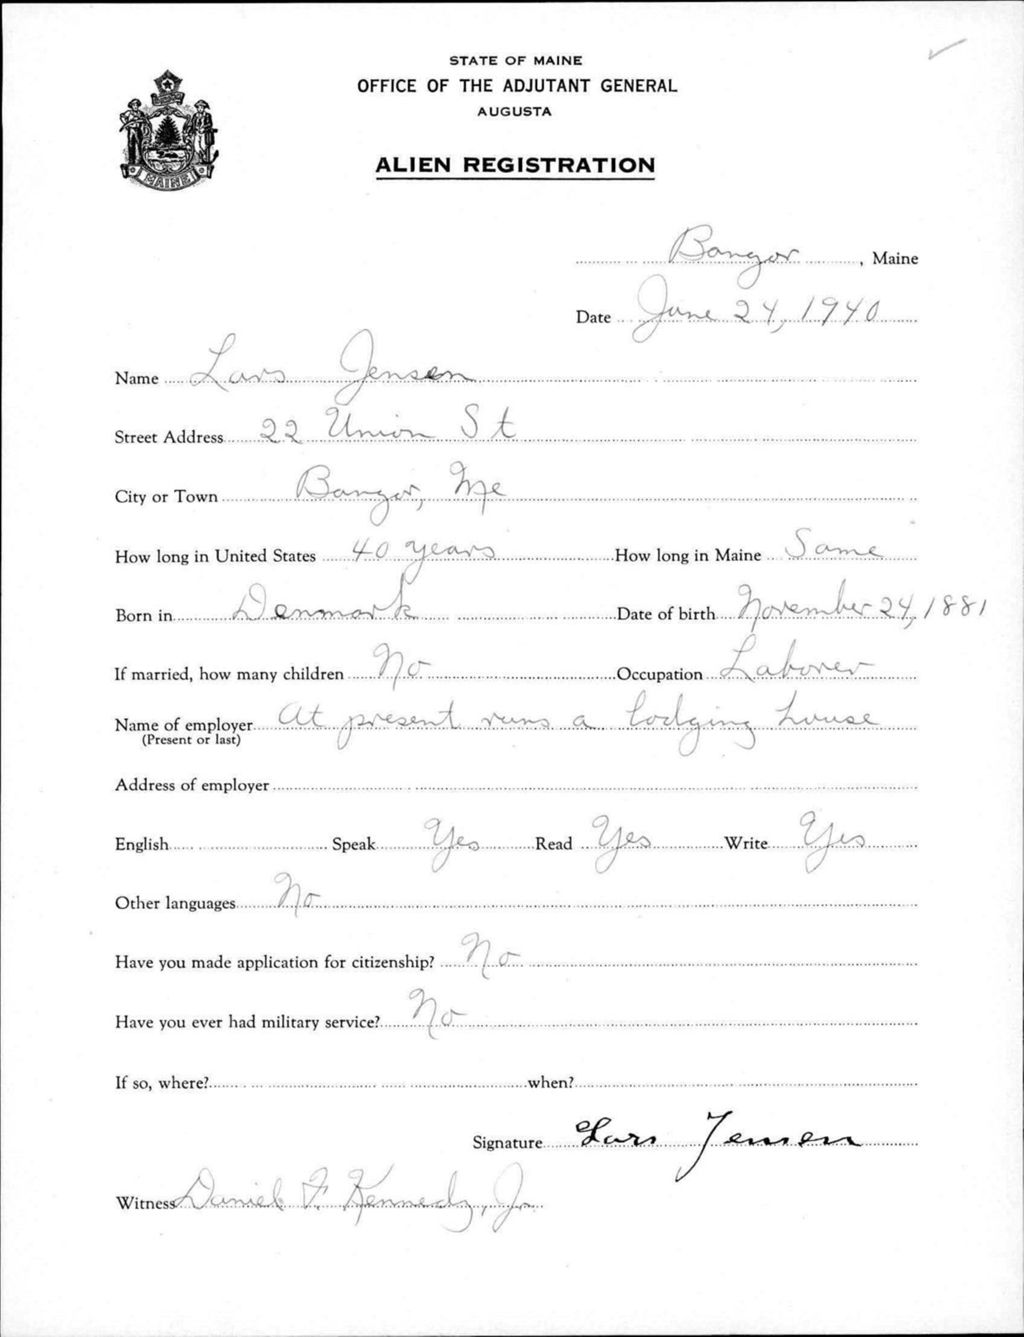 STATE OF MAINE
OFFICE OF THE ADJUTANT GENERAL
AUGUSTA
ALIEN REGISTRATION
MAINE
Bangor, Maine
Date June 24, 1940
Name Lars Jensen
Street Address 22 Union St
City or Town Bangor, Me
How long in United States 40 years How long in Maine Same
Born in Denmark Date of birth November 24, 1881
If married, how many children No Occupation Laborer
Name of employer At present runs a lodging house
(Present or last)
Address of employer
English Speak Yes Read Yes Write Yes
Other languages No
Have you made application for citizenship? No
Have you ever had military service? No
If so, where? when?
Signature Lars Jensen
Witness Daniel F. Kennedy, Jr.